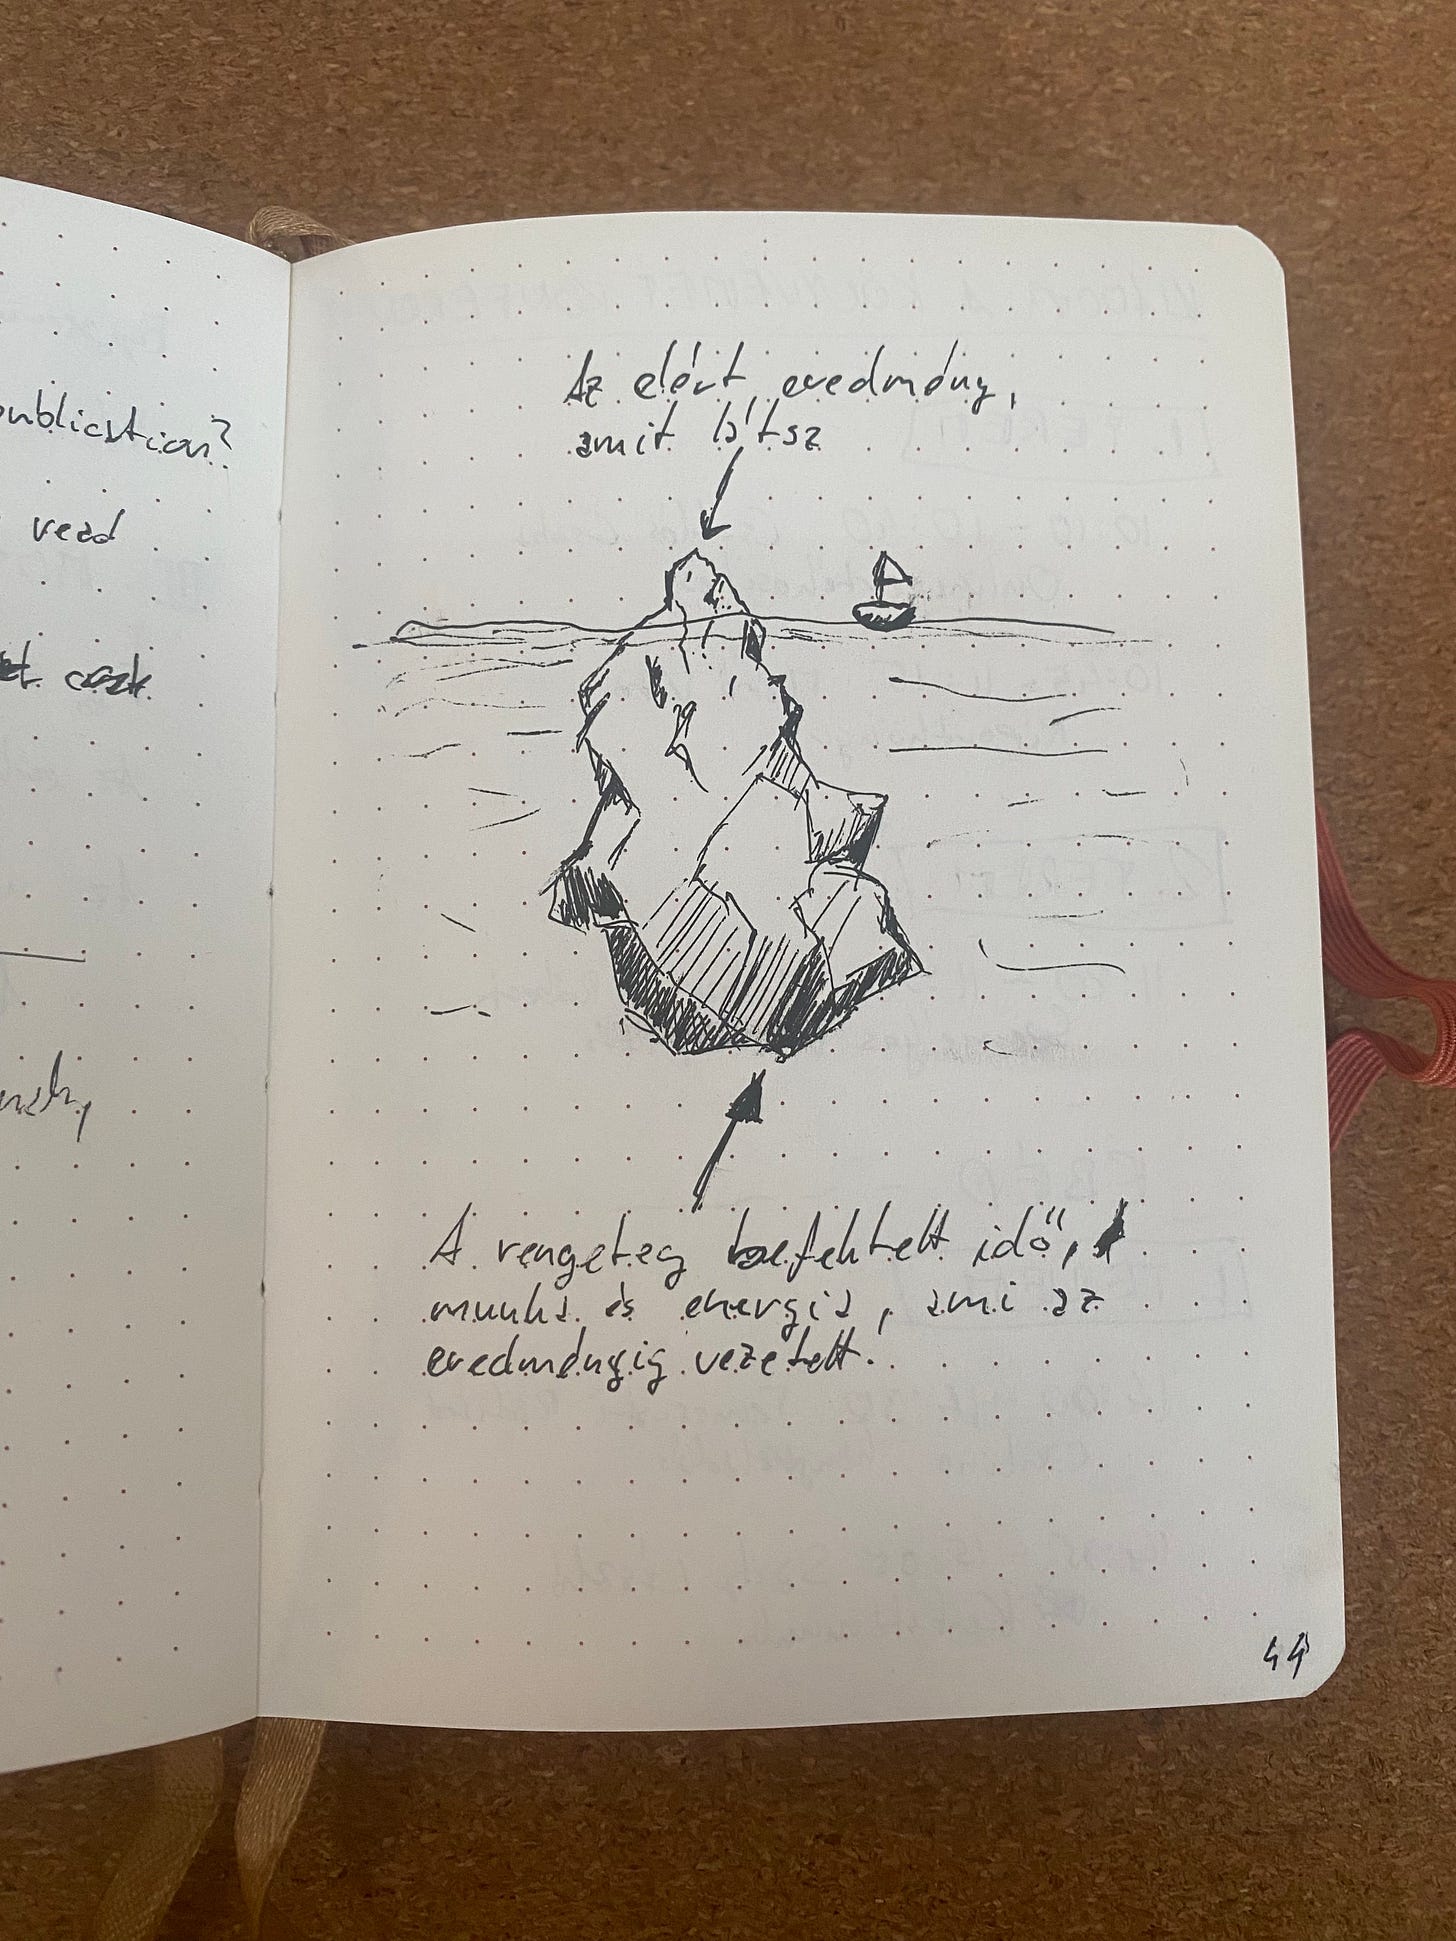 publication?
read
csak
Az elért eredmény,
amit látsz
A rengeteg befektetett idő,
munka és energia, ami az
eredményig vezetett.
44